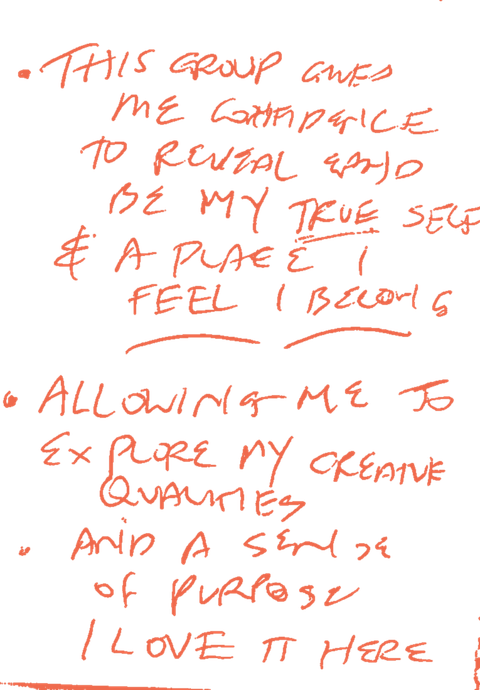 • THIS GROUP GIVES
ME CONFIDENCE
TO REVEAL AND
BE MY TRUE SELF
& A PLACE I
FEEL I BELONG
• ALLOWING ME TO
EXPLORE MY CREATIVE
QUALITIES
• AND A SENSE
OF PURPOSE
I LOVE IT HERE